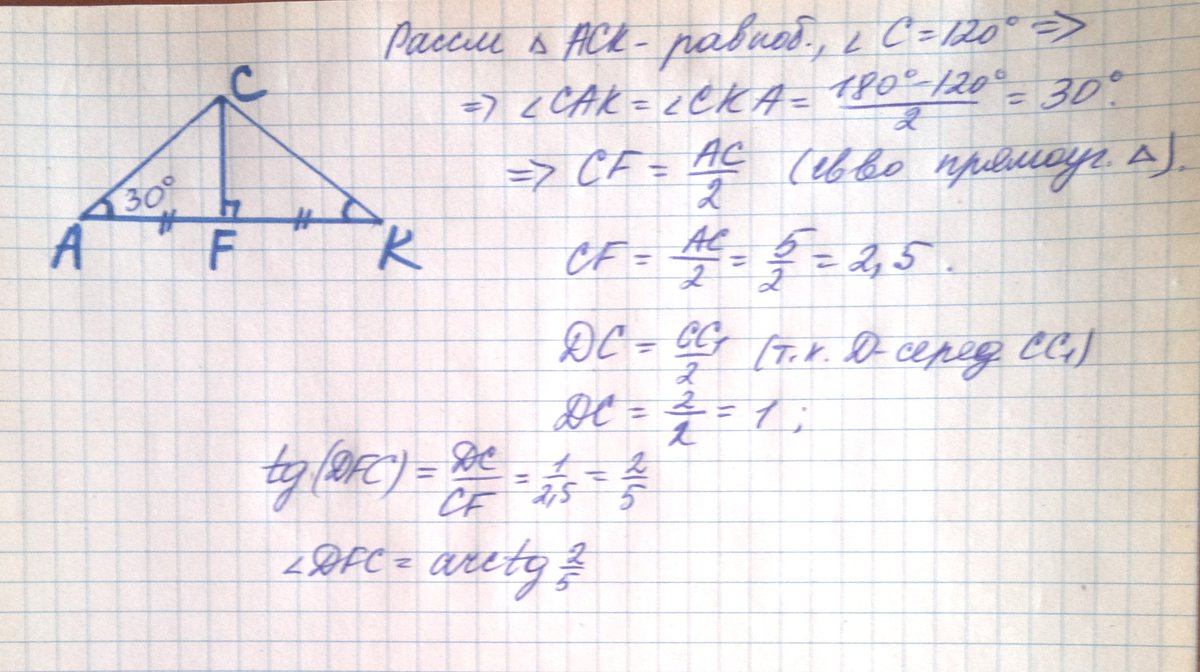 Рассм △ ACK - равноб., ∠ C = 120° =>
=> ∠CAK = ∠CKA = (180° - 120°)/2 = 30°.
=> CF = AC/2 (св-во прямоуг. △).
CF = AC/2 = 5/2 = 2,5.
DC = CC₁/2 (т.к. D - серед CC₁)
DC = 2/2 = 1;
tg(DFC) = DC/CF = 1/2,5 = 2/5
∠DFC = arctg 2/5
C
30°
A F K